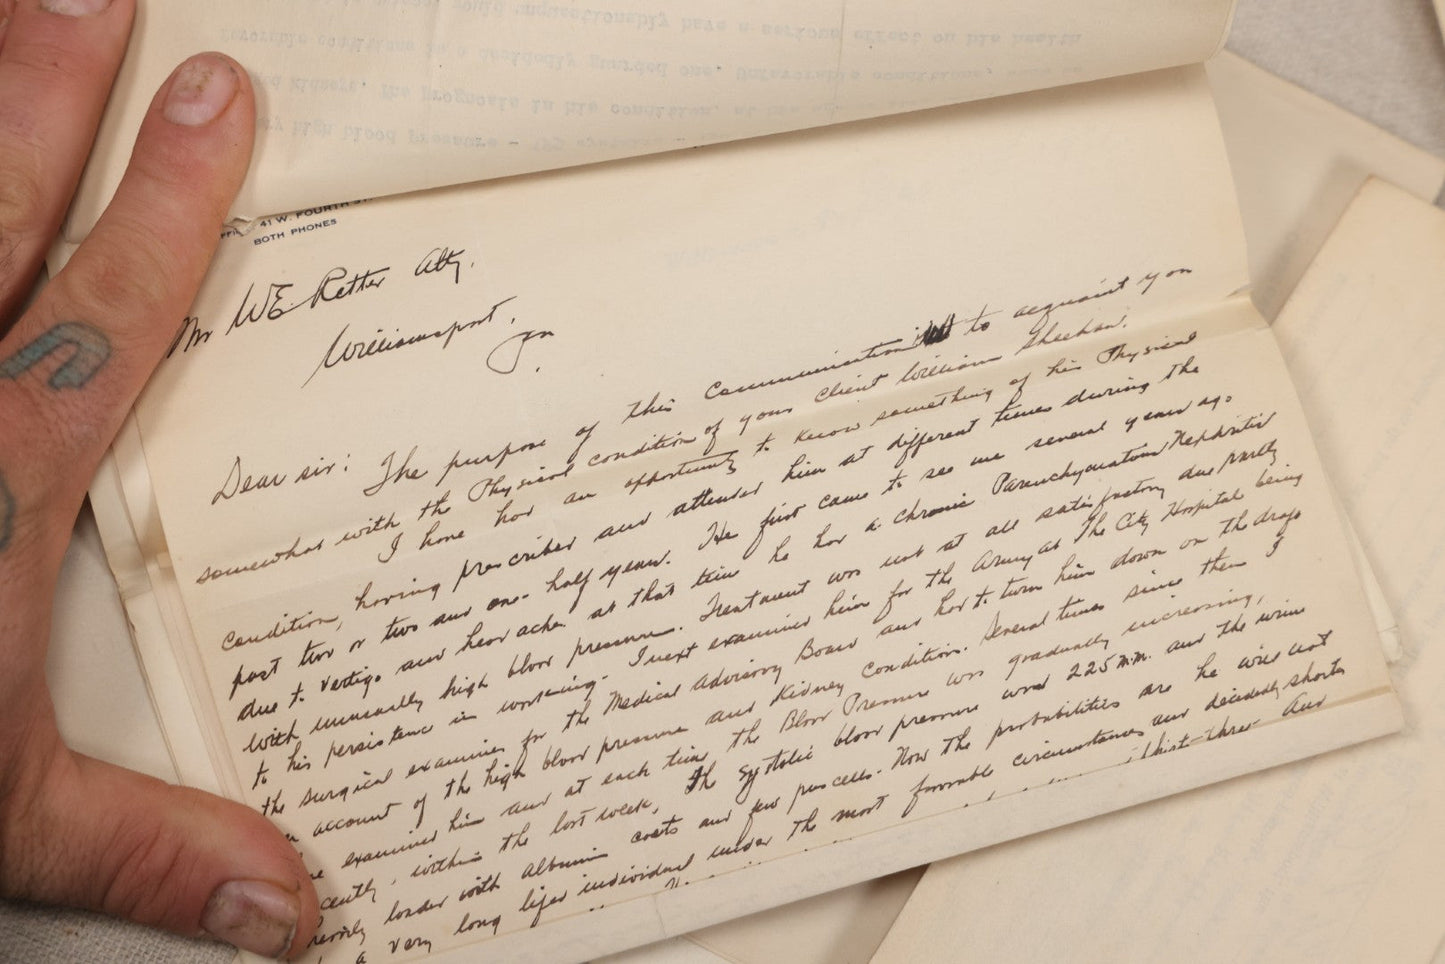 would unquestionably have a serious effect on his health
favorable conditions is a decidedly guarded one. Unfavorable conditions, such as
kidneys. The prognosis in his condition, at
high blood pressure -
41 W. FOURTH ST.
BOTH PHONES
Mr W E Retter Atty.
Williamsport,
Pa.
Dear sir: The purpose of this communication is to acquaint you
somewhat with the Physical condition of your client William Sheehan.
I have had an opportunity to know something of his Physical
Condition, having prescribed and attended him at different times during the
past two or two and one-half years. He first came to see me several years ago
due to vertigo and headache at that time he had a chronic Parenchymatous Nephritis
with unusually high blood pressure. Treatment was not at all satisfactory due partly
to his persistence in working. I next examined him for the Army at The City Hospital being
the surgical examiner for the Medical Advisory Board and had to turn him down on the draft
on account of the high blood pressure and Kidney condition. Several times since then I
examined him and at each time the Blood Pressure was gradually increasing,
within the last week, the systolic blood pressure was 225 m.m. and the urine
loaded with albumin casts and few pus cells. Now the probabilities are he will not
a very long lived individual under the most favorable circumstances and decidedly shorter
thirty-three and